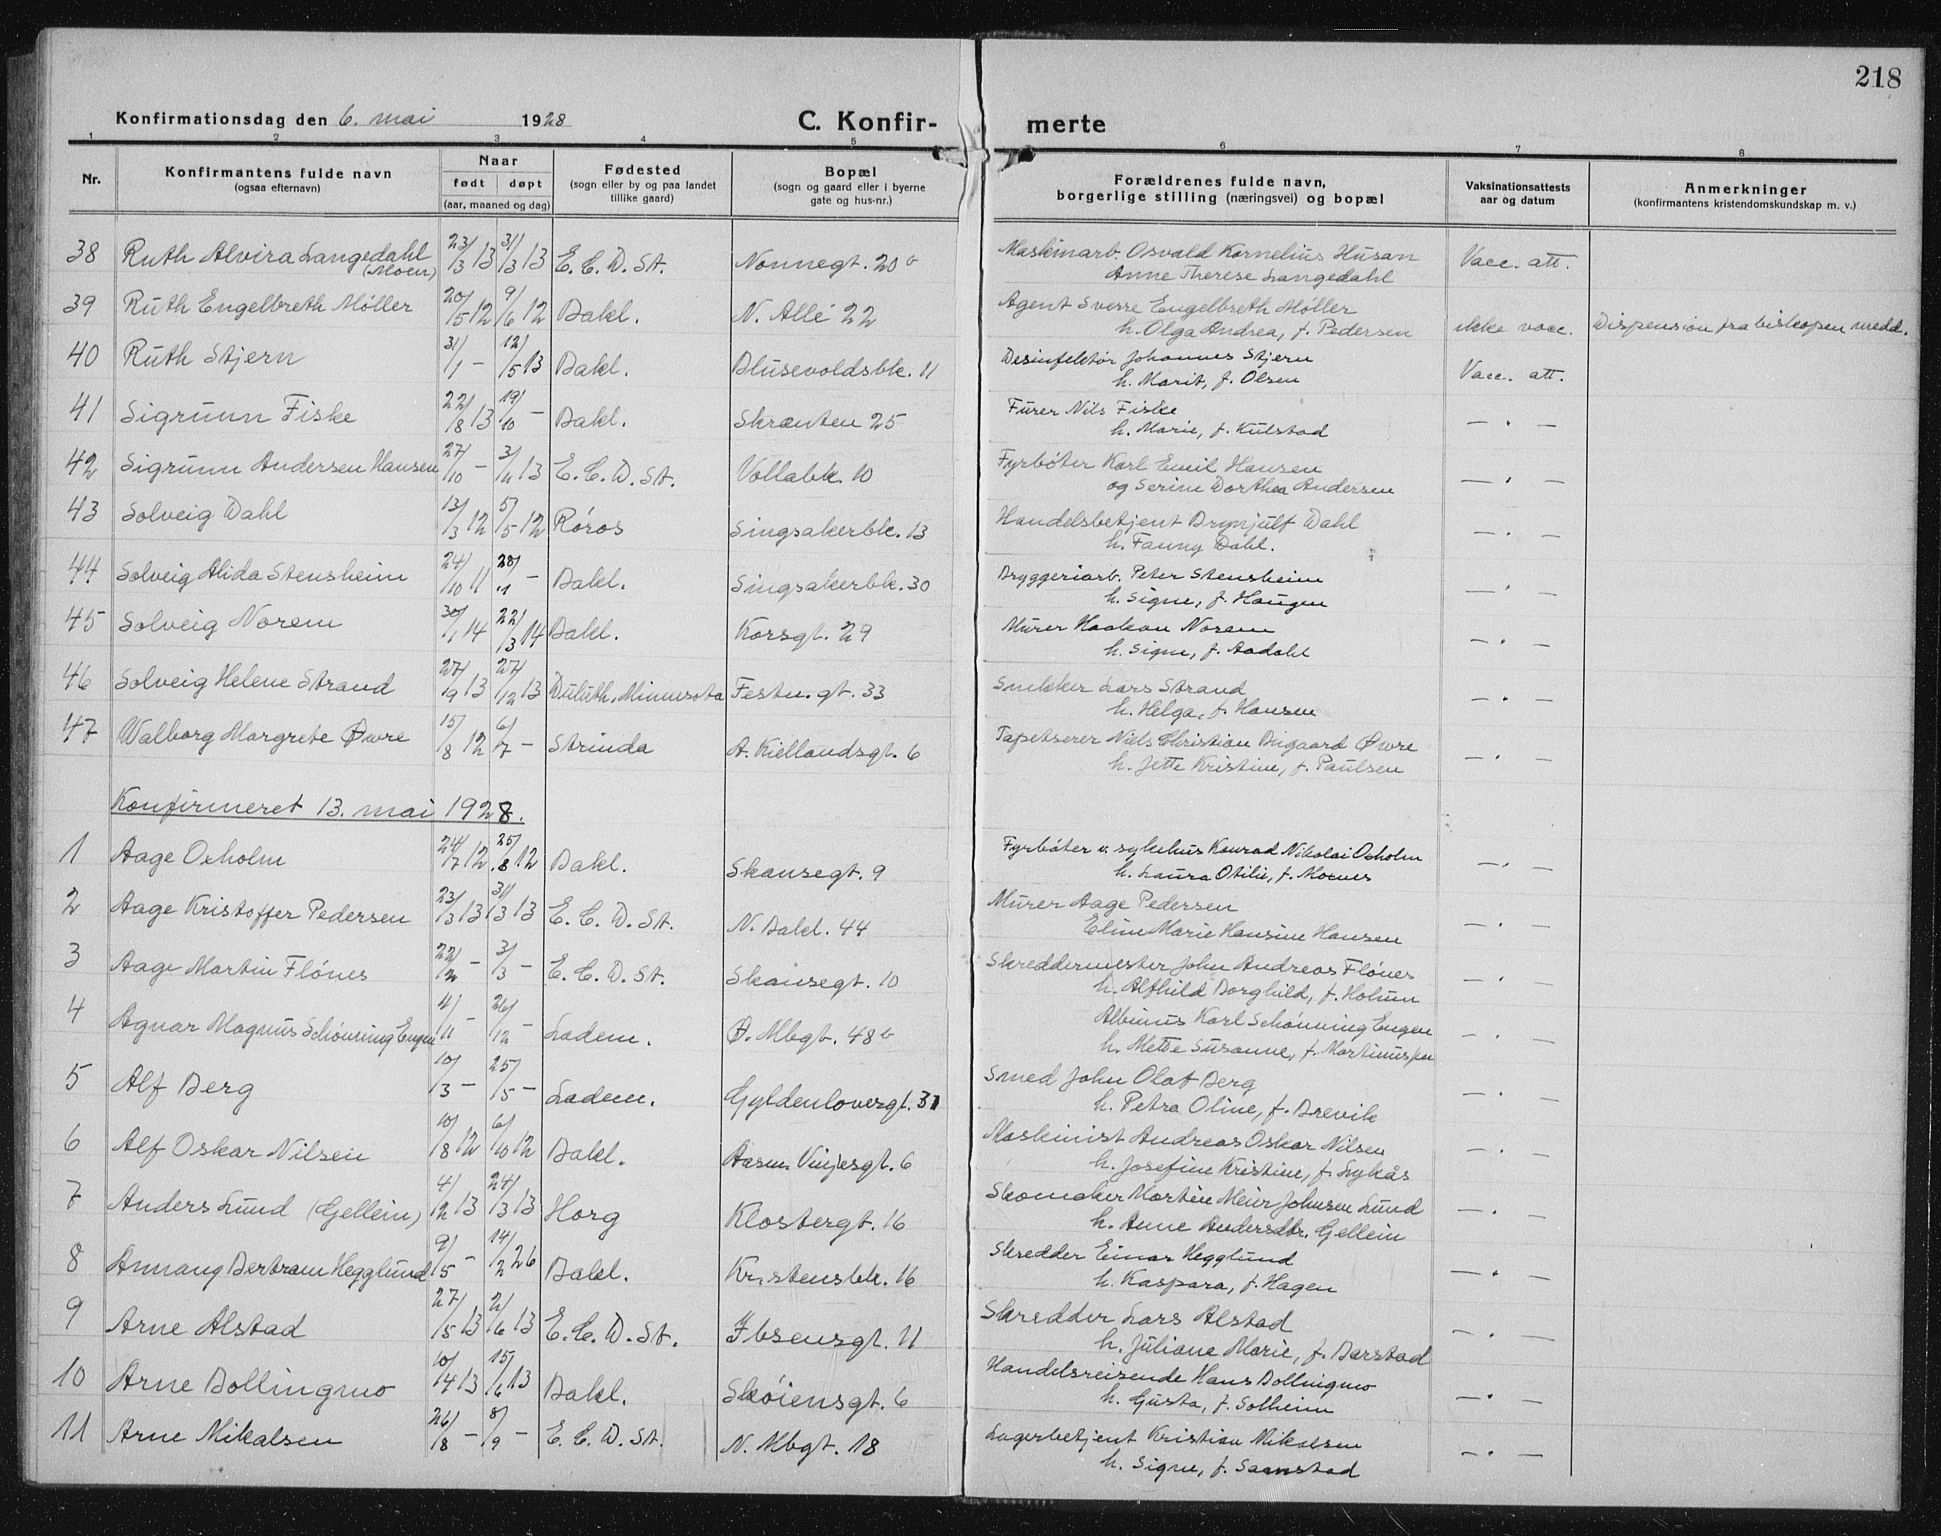 218
Konfirmationsdag den 6. mai 1928 C. Konfir- merte
1 2 3 4 5 6 7 8
Nr. Konfirmantens fulde navn (ogsaa efternavn) Naar født døpt (aar, maaned og dag) Fødested (sogn eller by og paa landet tillike gaard) Bopæl (sogn og gaard eller i byerne gate og hus-nr.) Forældrenes fulde navn, borgerlige stilling (næringsvei) og bopæl Vaksinationsattests aar og datum Anmerkninger (konfirmantens kristendomskundskap m. v.)
38 Ruth Alvira Langedahl (Moen) 23/3 13 31/3 13 E. C. D. St. Nonnegt. 20 b Maskinarb. Osvald Kornelius Husan Vacc. att.
Anne Therese Langedahl
39 Ruth Engelbreth Møller 20/5 12 9/6 12 Bakl. N. Allé 22 Agent Sverre Engelbreth Møller
h. Olga Andrea, f. Pedersen ikke vacc. Dispension fra biskopen medd.
40 Ruth Stjern 31/1 - 12/5 13 Bakl. Blusevoldsbk. 11 Desinfektør Johannes Stjern
h. Marit, f. Olsen Vacc. att.
41 Sigrunn Fiske 22/8 13 19/10 - Bakl. Skrænten 25 Furer Nils Fiske
h. Marie, f. Kulstad — . —
42 Sigrunn Andersen Hansen 27/10 - 3/11 13 E. C. D. St. Vollabk. 10 Fyrbøter Karl Emil Hansen
og Serine Dorthea Andersen — . —
43 Solveig Dahl 13/3 12 5/5 12 Røros Singsakerbk. 13 Handelsbetjent Brynjulf Dahl
h. Fanny Dahl. — . —
44 Solveig Alida Stensheim 24/10 11 28/1 - Bakl. Singsakerbk. 30 Bryggeriarb. Peter Stensheim
h. Signe, f. Haugen — . —
45 Solveig Norem 30/1 14 22/3 14 Bakl. Korsgt. 29 Murer Haakon Norem
h. Signe, f. Aadahl — . —
46 Solveig Helene Strand 27/9 13 27/12 13 Duluth, Minnesota Festn. gt. 33 Snekker Lars Strand
h. Helga, f. Hansen — . —
47 Walborg Margrete Øvre 15/8 12 6/7 - Strinda A. Kiellandsgt. 6 Tapetserer Niels Christian Bugaard Øvre
h. Jette Kristine, f. Paulsen — . —
Konfirmeret 13. mai 1928.
1 Aage Oxholm 24/7 12 25/8 12 Bakl. Skansegt. 9 Fyrbøter v. sykehus Konrad Nikolai Oxholm
h. Laura Otilie, f. Moenes — . —
2 Aage Kristoffer Pedersen 23/3 13 31/3 13 E. C. D. St. N. Bakl. 44 Murer Aage Pedersen
Eline Marie Hansine Hansen — . —
3 Aage Martin Flønes 22/12 - 3/3 - E. C. D. St. Skansegt. 10 Skreddermester John Andreas Flønes
h. Alfhild Borghild, f. Holum — . —
4 Agnar Magnus Schønning Engen 4/11 - 26/12 - Ladem. Ø. Mbgt. 48 b Albinus Karl Schønning Engen
h. Mette Susanne, f. — . —
5 Alf Berg 10/3 - 25/5 - Ladem. Gyldenløvesgt. 31 Smed John Olaf Berg
h. Petra Oline, f. Brevik — . —
6 Alf Oskar Nilsen 10/8 12 6/10 12 Bakl. Aasm. Vinjesgt. 6 Maskinist Andreas Oskar Nilsen
h. Josefine Kristine, f. Lykås — . —
7 Anders Lund (Gellein) 4/12 13 24/3 13 Horg Klostergt. 16 Skomaker Martin Meier Johnsen Lund
h. Anne Andersdtr. Gellein — . —
8 Annang Bertram Hegglund 9/5 - 14/2 26 Bakl. Kristensbk. 16 Skredder Einar Hegglund
h. Kaspara, f. Hagen — . —
9 Arne Alstad 27/5 13 2/6 13 E. C. D. St. Ibsensgt. 11 Skredder Lars Alstad
h. Juliane Marie, f. Barstad — . —
10 Arne Bollingmo 10/4 13 15/6 13 Bakl. Skøiensgt. 6 Handelsreisende Hans Bollingmo
h. Gusta, f. Solheim — . —
11 Arne Mikalsen 26/8 - 8/9 - E. C. D. St. N. Mbgt. 18 Lagerbetjent Kristian Mikalsen
h. Signe, f. Saanstad — . —